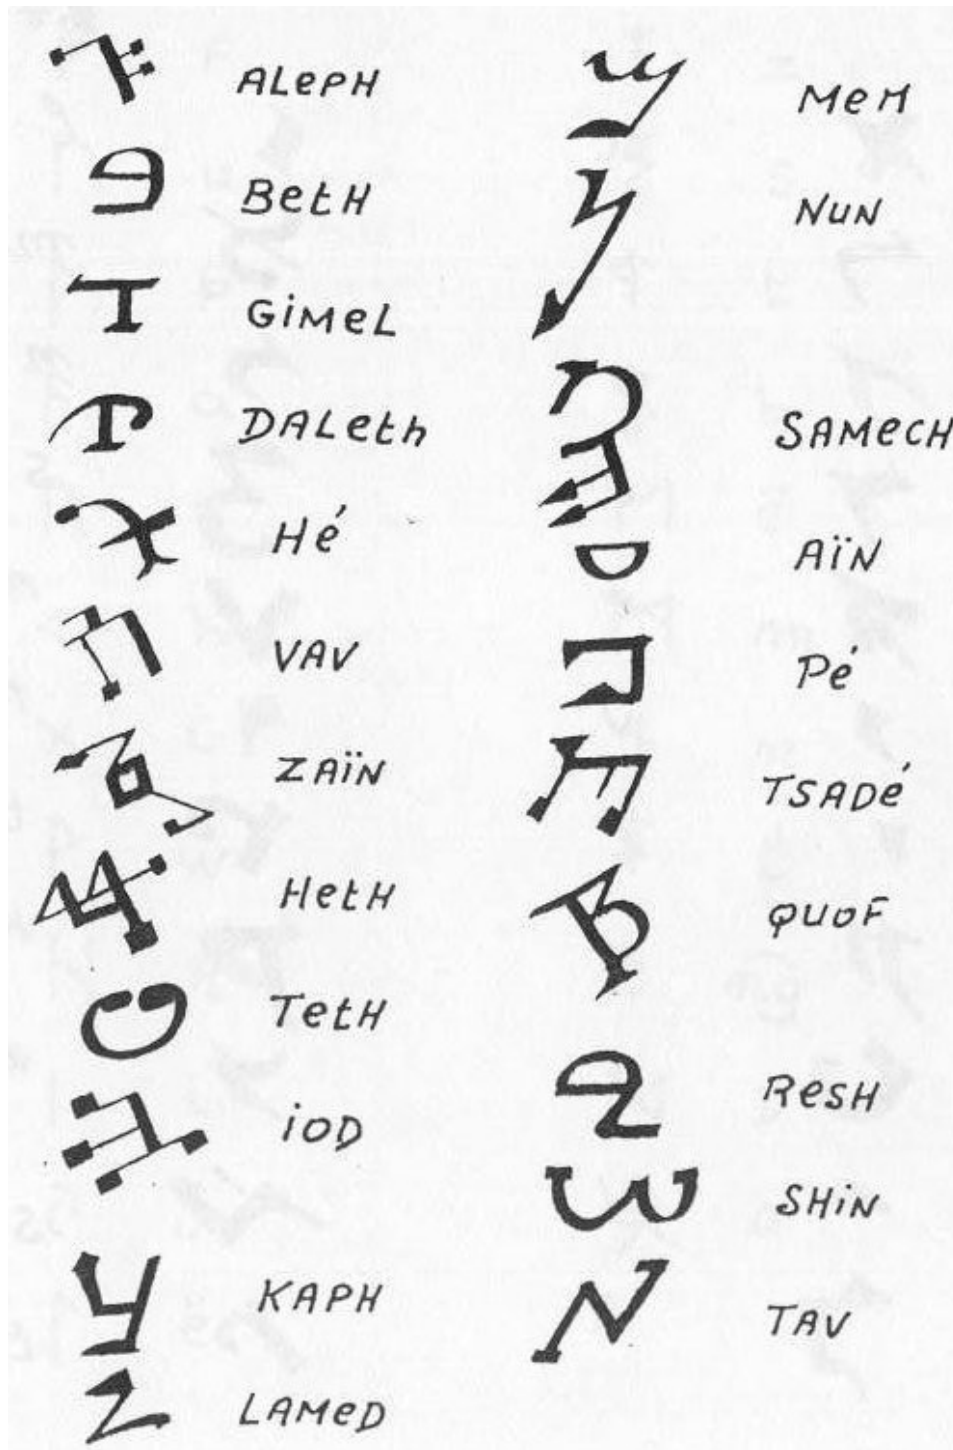 ALePH
BetH
GiMeL
DALeth
Hé
VAV
ZAïN
HetH
TetH
iOD
KAPH
LAMeD
MeM
NuN
SAMecH
AïN
Pé
TSADé
QUOF
ResH
SHiN
TAV